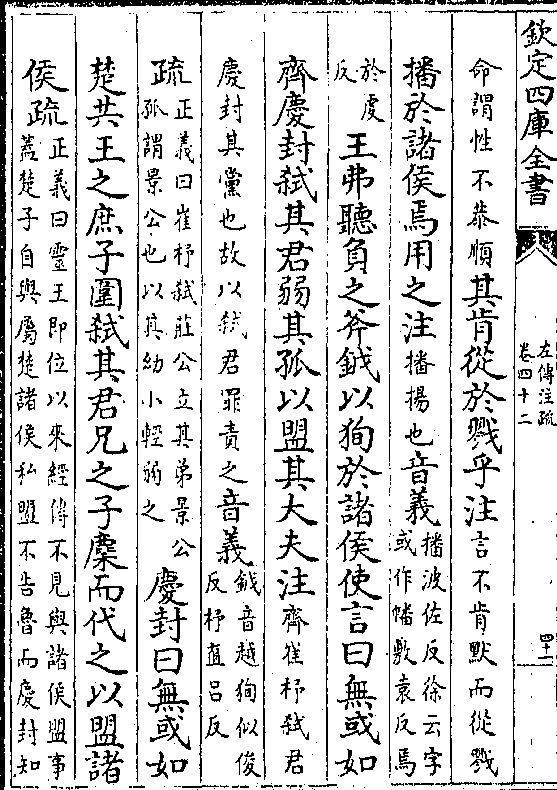 欽定四庫全書
左傳注疏
卷四十二
四十一
命謂性不恭順其肯從於戮乎注言不肯默而從戮
播於諸侯焉用之注播揚也音義播波佐反徐云字或作幡敷袁反焉
於虔反王弗聽負之斧鉞以狥於諸侯使言曰無或如
齊慶封弒其君弱其孤以盟其大夫注齊崔杼弒君
慶封其黨也故以弒君罪責之音義鉞音越狥似俊反杼直呂反
疏正義曰崔杼弒莊公立其弟景公孤謂景公也以其幼小輕弱之慶封曰無或如
楚共王之庶子圍弒其君兄之子麇而代之以盟諸
侯疏正義曰靈王即位以來經傳不見與諸侯盟事蓋楚子自與屬楚諸侯私盟不告魯而慶封知